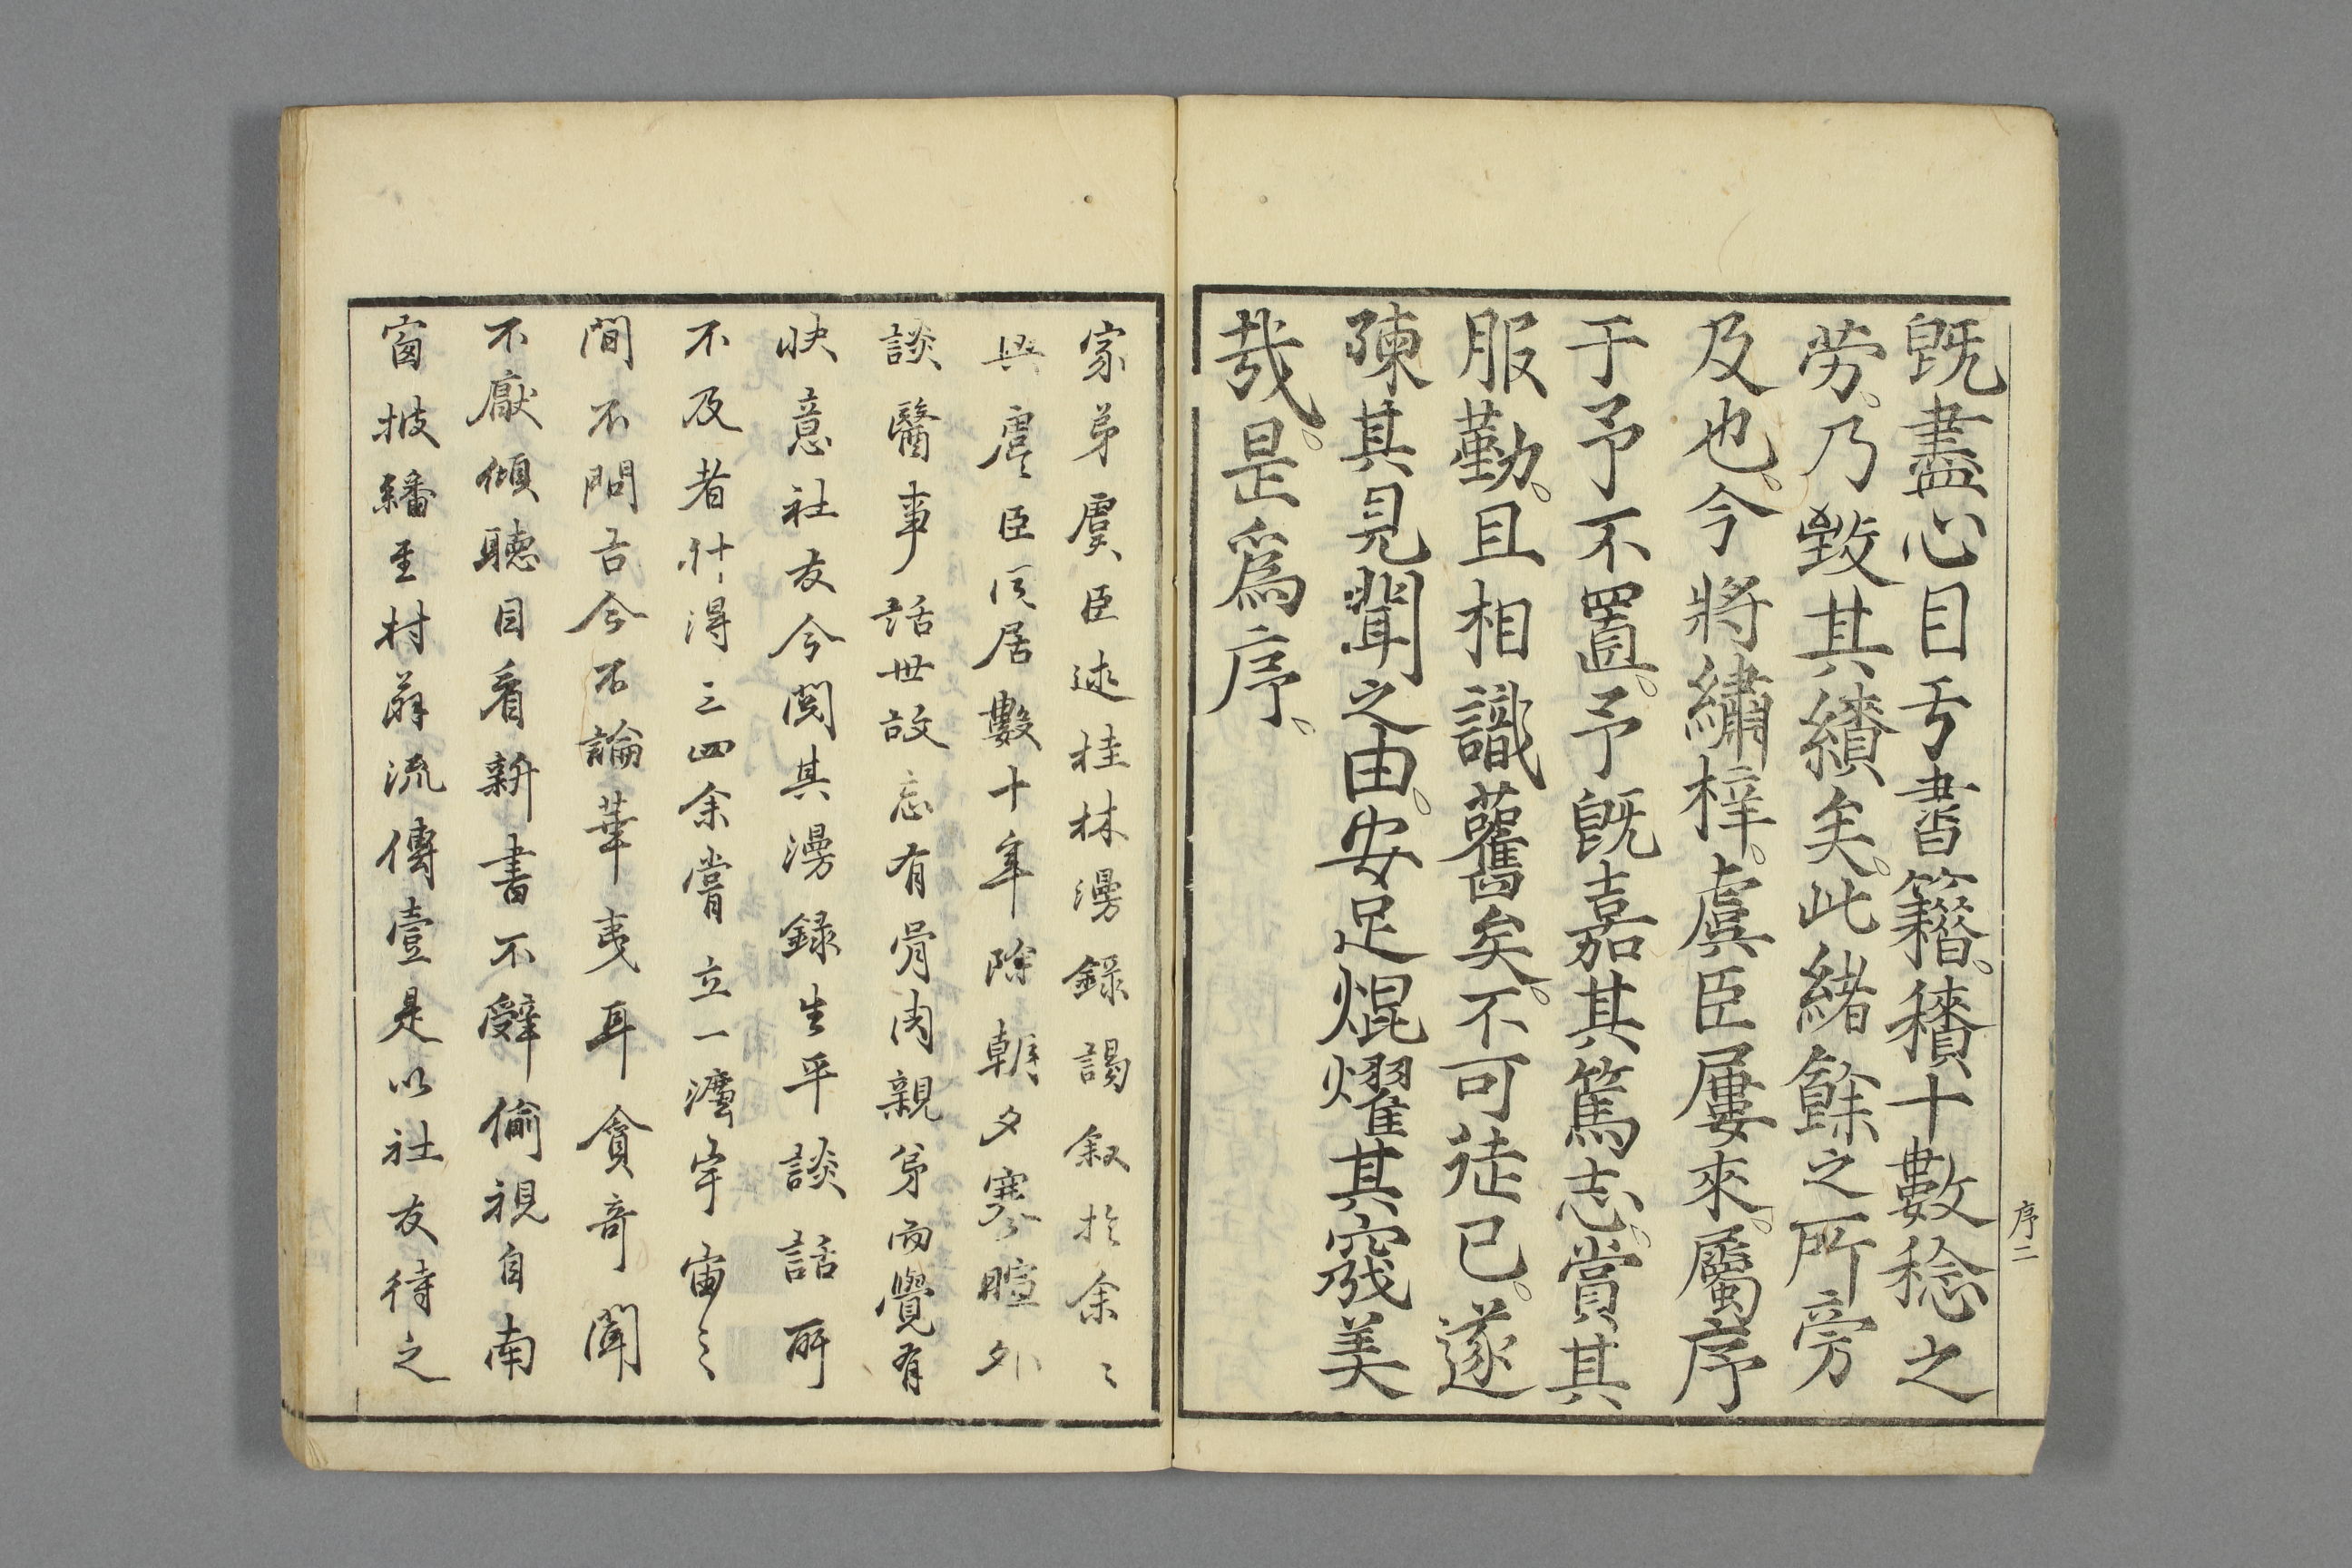 既盡心目于書籍。積十數稔之
勞。乃致其績矣。此緒餘之所旁
及也。今將繡梓。虞臣屢來。屬序
于予不置。予既嘉其篤志。賞其
服勤。且相識舊矣。不可徒已。遂
陳其見聞之由。安足焜燿其窺美
哉。是爲序。
序二
家弟虞臣述桂林漫録謁叙於余〻
與虞臣同居數十年除朝夕寒暄外
談醫事話世故忘有骨肉親弟而覺有
快意社友今閲其漫録生平談話所
不及者什得三四余嘗立一瀍宇宙之
間不問古今不論華夷耳貪奇聞
不厭傾聽目看新書不辭偷視自南
窗披繙至村莊流傳壹是以社友待之